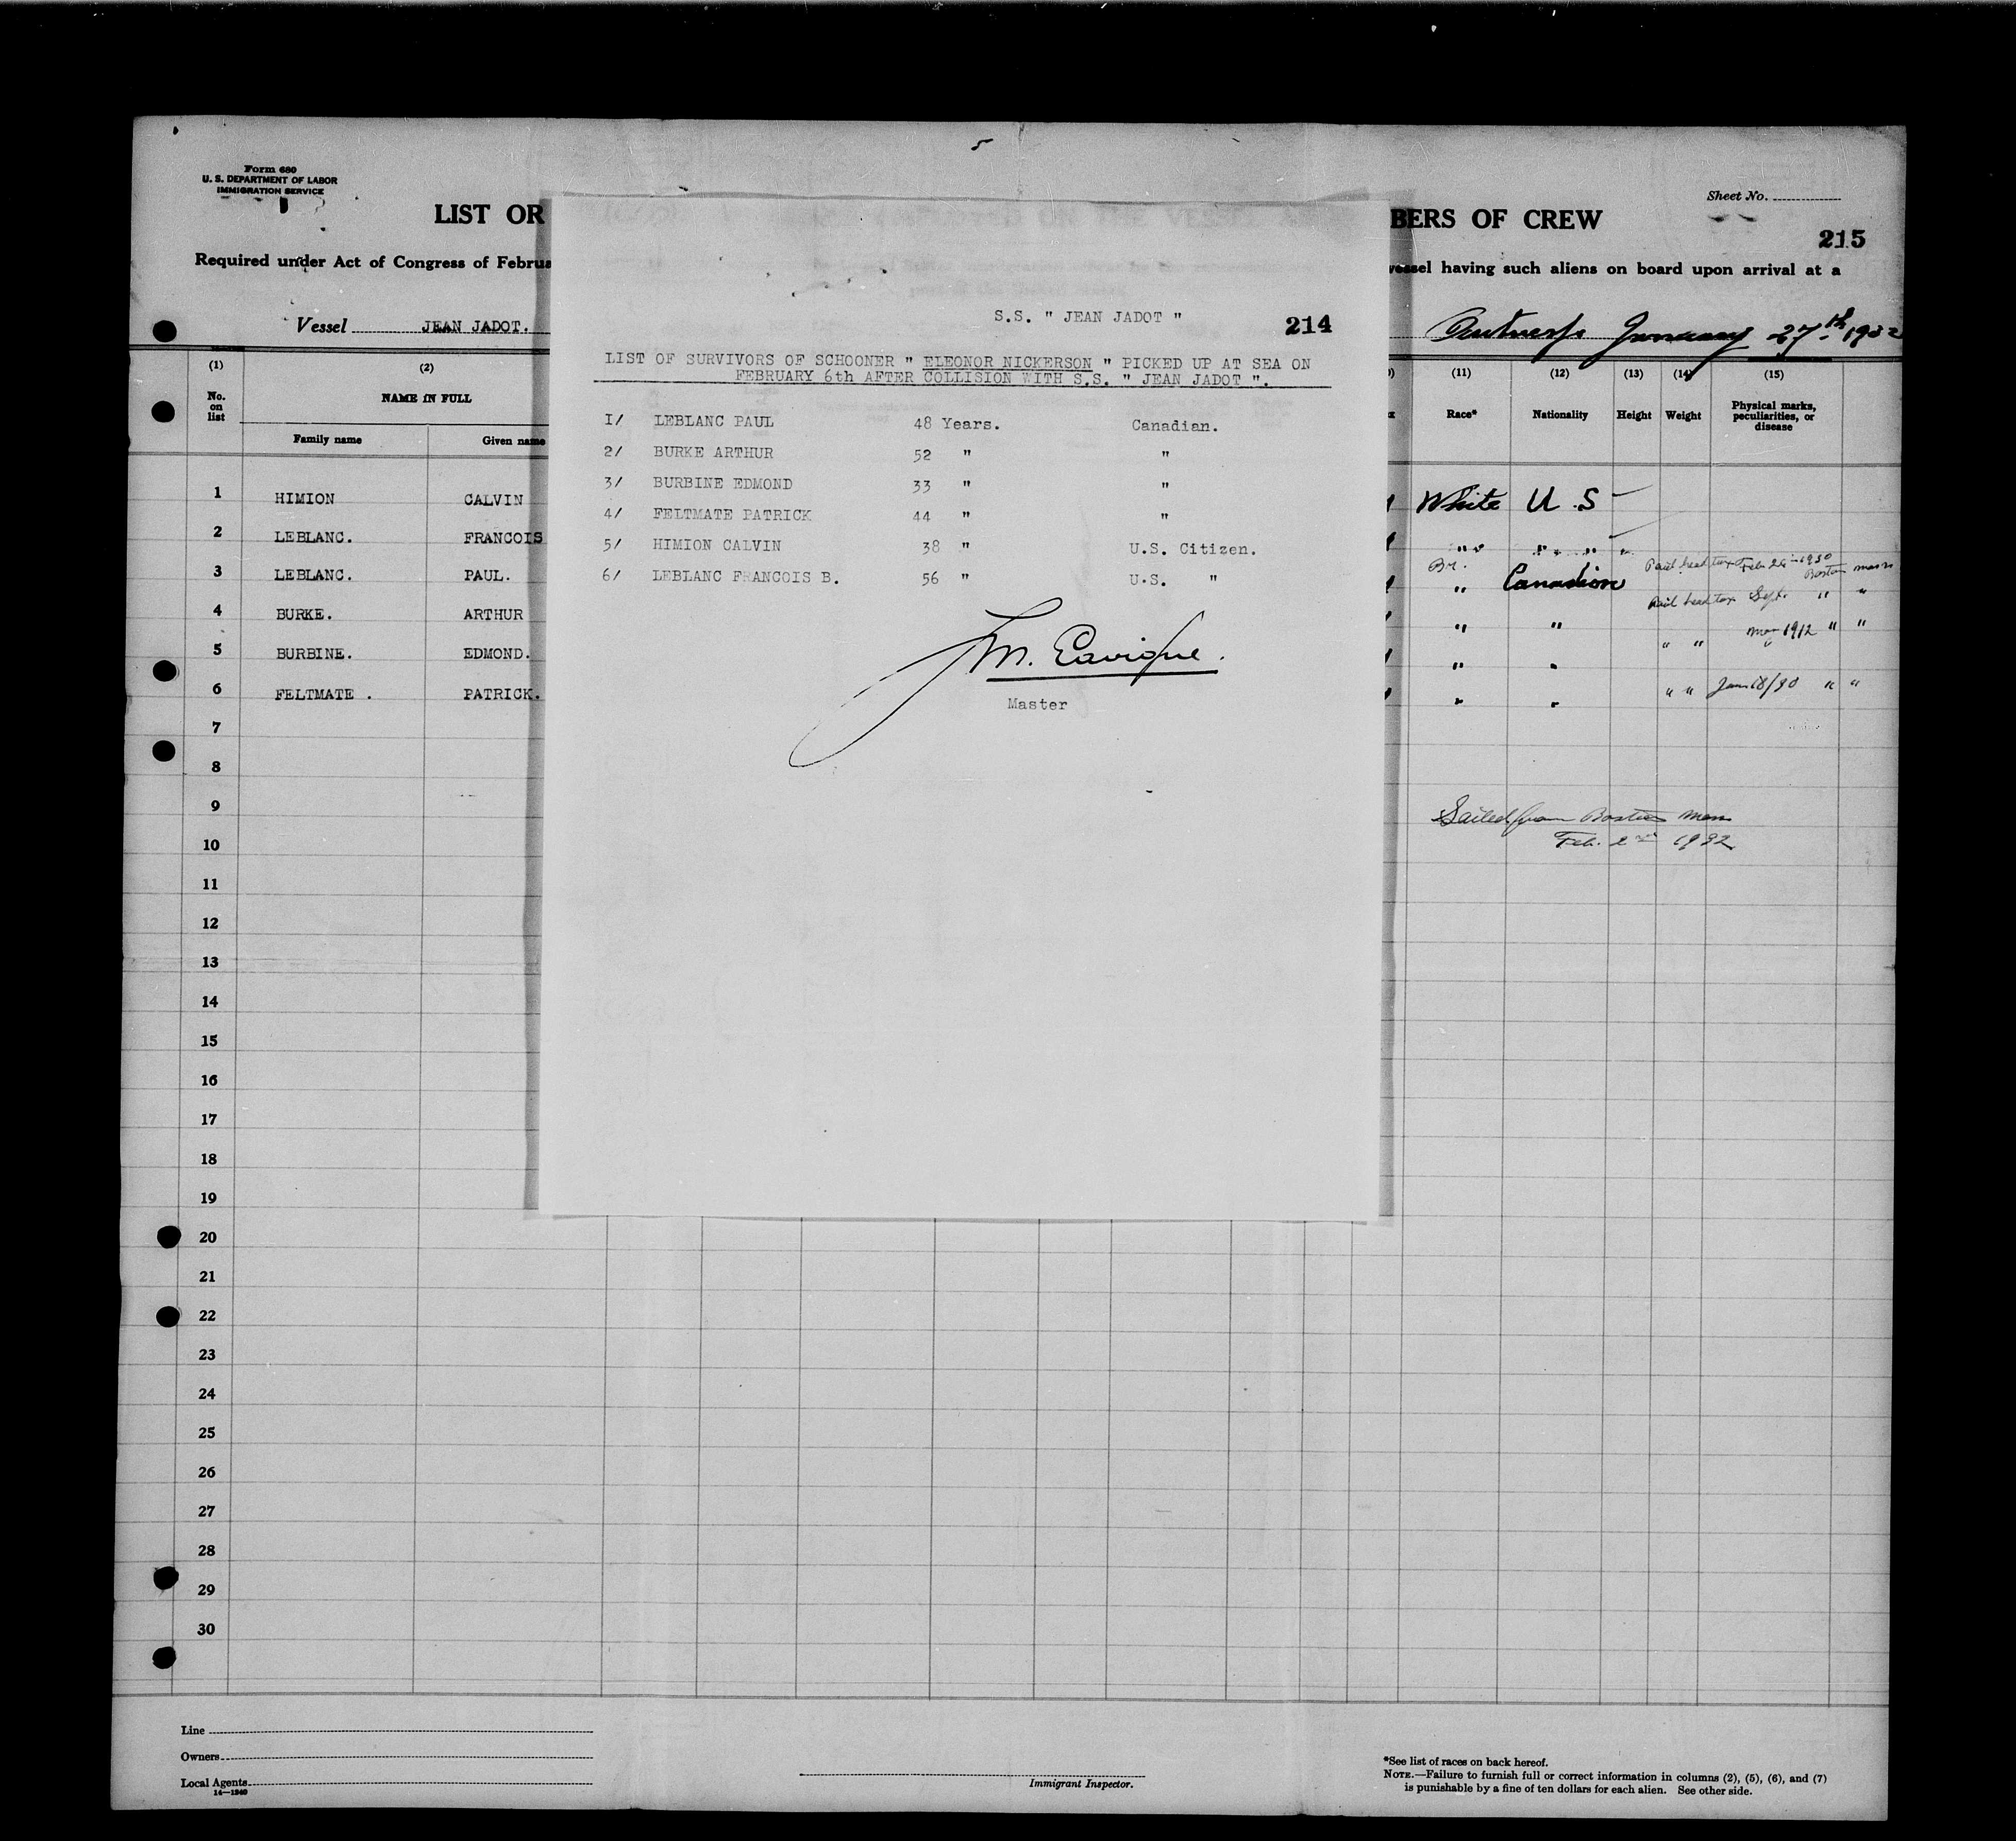 5
Form 680
U. S. DEPARTMENT OF LABOR
IMMIGRATION SERVICE
Sheet No.
LIST OR
BERS OF CREW
215
Required under Act of Congress of Februa
vessel having such aliens on board upon arrival at a
Vessel JEAN JADOT.
Antwerp January 27th 1932
S.S. " JEAN JADOT "
214
LIST OF SURVIVORS OF SCHOONER " ELEONOR NICKERSON " PICKED UP AT SEA ON
FEBRUARY 6th AFTER COLLISION WITH S.S. " JEAN JADOT ".
I/ LEBLANC PAUL 48 Years. Canadian.
2/ BURKE ARTHUR 52 " "
3/ BURBINE EDMOND 33 " "
4/ FELTMATE PATRICK 44 " "
5/ HIMION CALVIN 38 " U.S. Citizen.
6/ LEBLANC FRANCOIS B. 56 " U.S. "
Master
(1) (2)
No. on list
NAME IN FULL
Family name Given name
(11) (12) (13) (14) (15)
Race* Nationality Height Weight Physical marks, peculiarities, or disease
1 HIMION CALVIN White U.S
2 LEBLANC. FRANCOIS " " "
3 LEBLANC. PAUL. " Canadian Paid head tax Feb 1930 Boston mass
4 BURKE. ARTHUR " " Paid head tax Sept. " "
5 BURBINE. EDMOND. " " " " 1912 " "
6 FELTMATE . PATRICK. " " " " Jan 18/30 " "
7
8
9
10
Sailed from Boston Mass
Feb. 2nd 1932
11
12
13
14
15
16
17
18
19
20
21
22
23
24
25
26
27
28
29
30
Line
Owners
Local Agents
14—1240
Immigrant Inspector.
*See list of races on back hereof.
NOTE.—Failure to furnish full or correct information in columns (2), (5), (6), and (7)
is punishable by a fine of ten dollars for each alien. See other side.